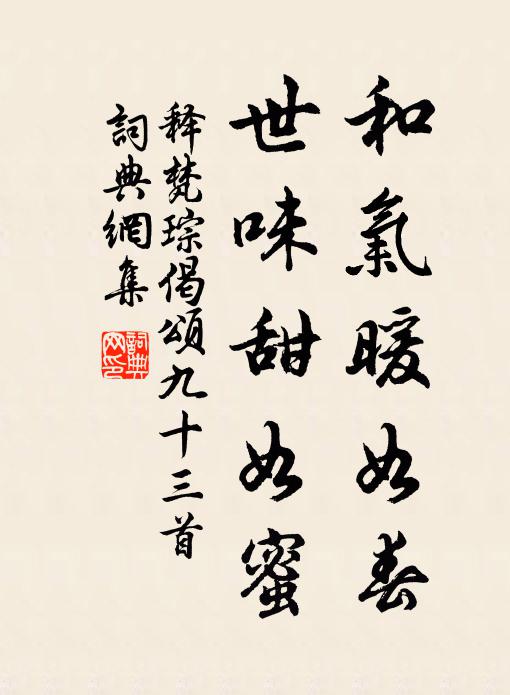 和氣暖如春
世味甜如蜜
释梵琮偈頌九十三首
詞典網集
詞典网印